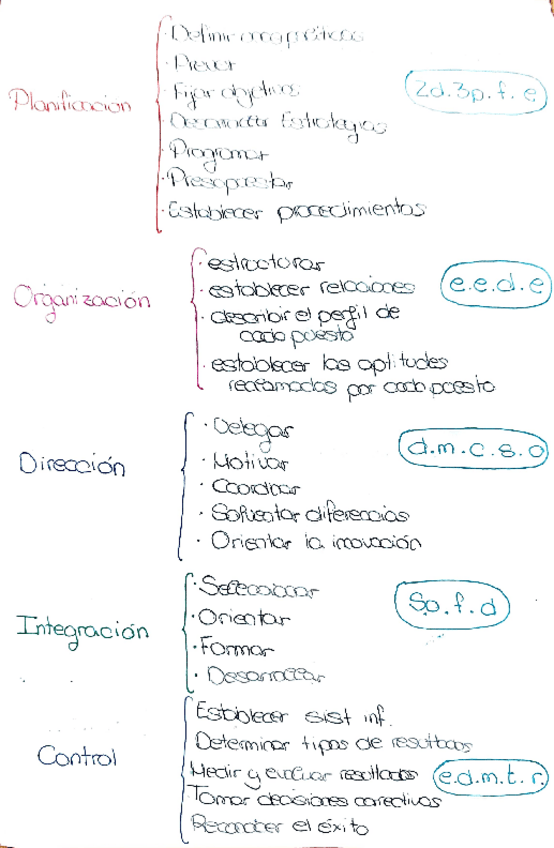 Planificacion
· Definir
· Prever
· Fijar objetivos
· Desarrollar Estrategias
· Programar
· Presupuestar
· Establecer procedimientos
2d.3p.f.e
Organización
· estructurar
· establecer relaciones
· describir el perfil de
cada puesto
· establecer las aptitudes
reclamadas por cada puesto
e.e.d.e
Dirección
· Delegar
· Motivar
· Coordinar
· Solventar diferencias
· Orientar la innovación
d.m.c.s.o
Integración
· Seleccionar
· Orientar
· Formar
· Desarrollar
S.o.f.d
Control
Establecer sist inf.
Determinar tipos de resultados
Medir y evaluar resultados
Tomar decisiones correctivas
Reconocer el éxito
e.d.m.t.r.